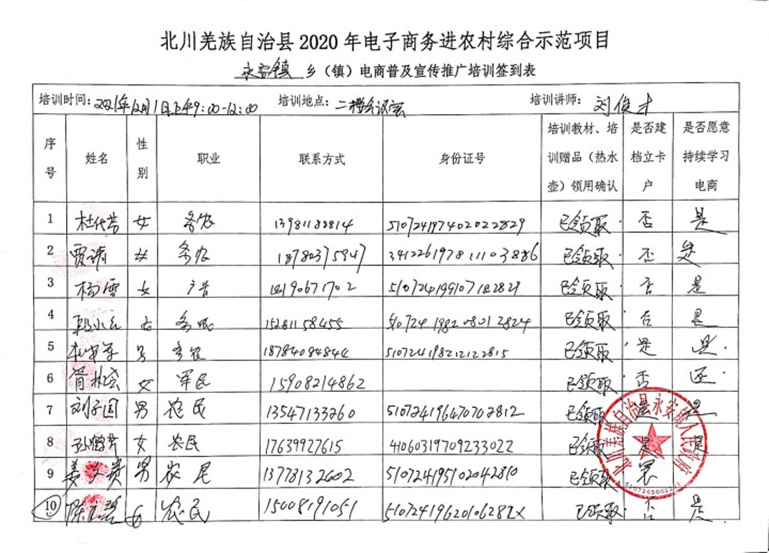 北川羌族自治县2020年电子商务进农村综合示范项目
永安镇 乡（镇）电商普及宣传推广培训签到表
培训时间：2021年12月1日上午9：00-12：00 培训地点：二楼会议室 培训讲师：刘俊才
序号 姓名 性别 职业 联系方式 身份证号 培训教材、培训赠品（热水壶）领用确认 是否建档立卡户 是否愿意持续学习电商
1 杜代芳 女 务农 13981188814 510724197402022829 已领取 否 是
2 贾靖 女 务农 18782375947 341226197811103886 已领取 否 是
3 杨雪 女 已领取 否 是
4 女 15281158455 510724198208012824 已领取 否 是
5 男 务农 18784084844 510724198212122815 已领取 是 是
6 女 军民 15908214862 已领取 否
7 刘子国 男 农民 13547133260 510724196407072812 已领取 是
8 孙鹤芹 女 农民 17639927615 41060319709233022 已领取 是 是
9 姜文贵 男 农民 13778132602 510724195102042810 已领取
10 女 农民 15008191051 51072419620106282X 已领取 否 是
北川羌族自治县永安镇人民政府